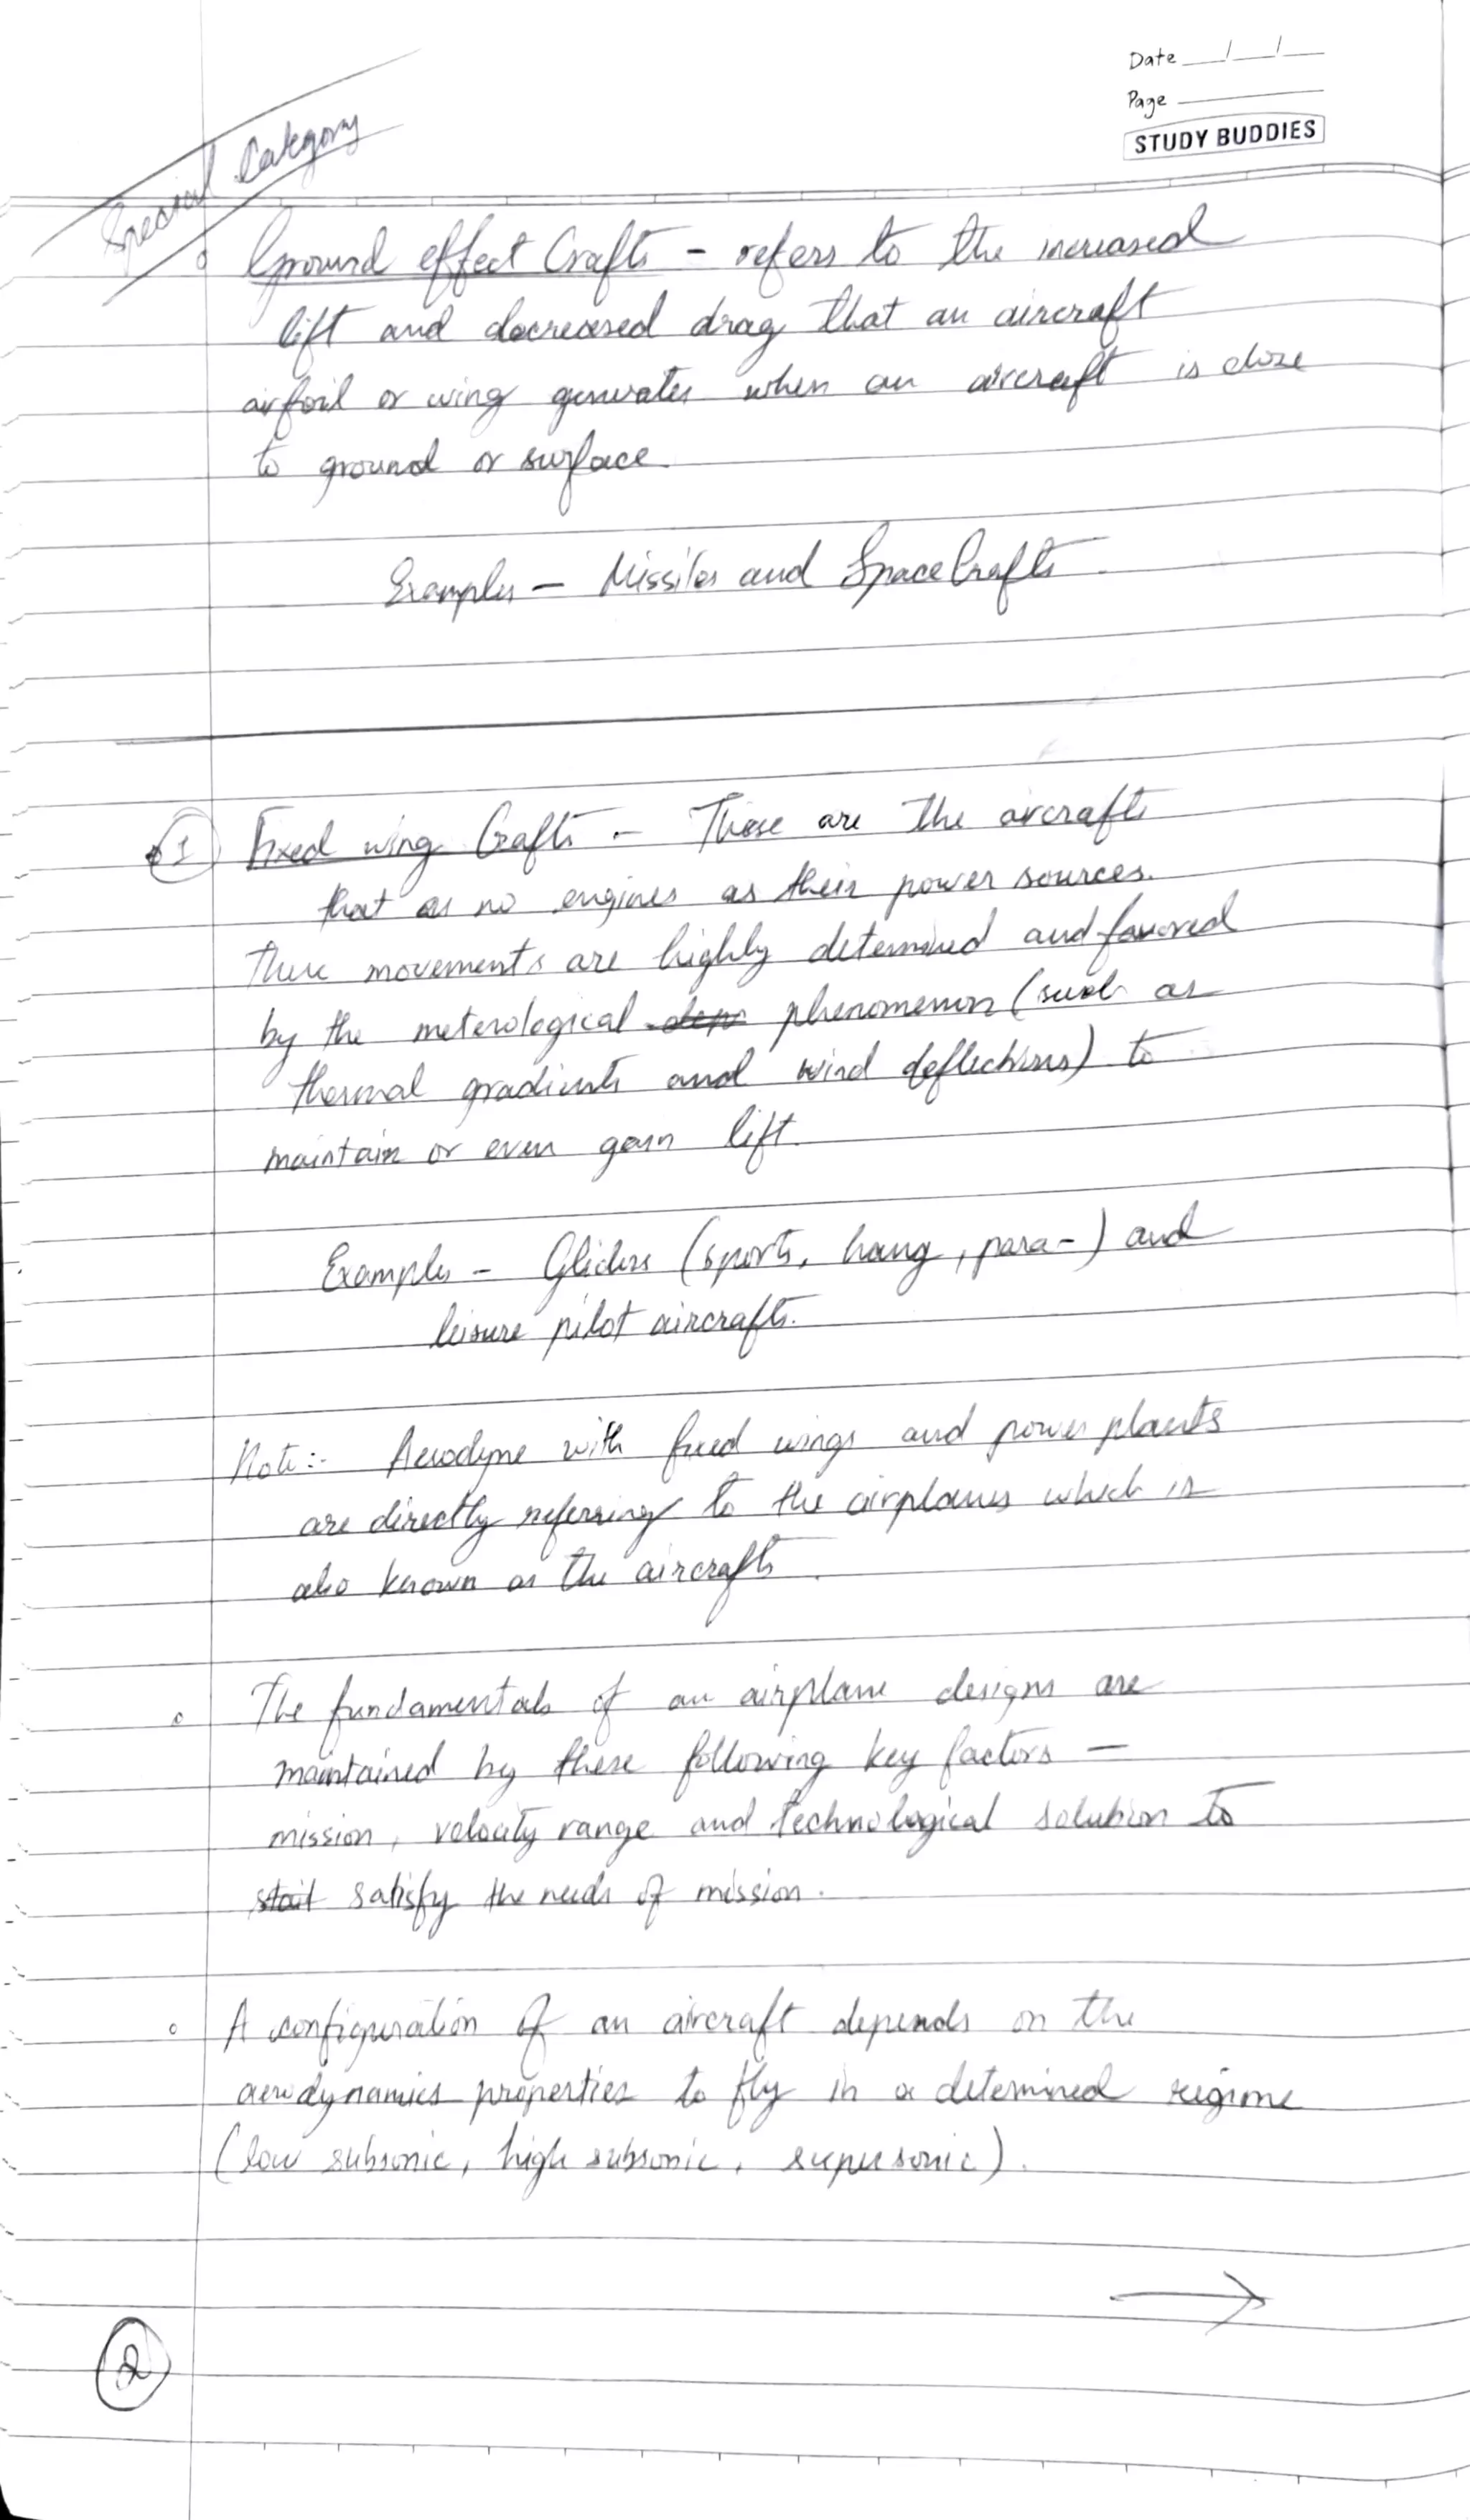 Date __/__/__
Page
STUDY BUDDIES
Special Category
Ground effect Crafts - refers to the increased
lift and decreased drag that an aircraft
airfoil or wing generates when an aircraft is close
to ground or surface.
Examples - Missiles and SpaceCrafts.
1 Fixed wing Crafts - These are the aircrafts
that as no engines as their power sources.
There movements are highly determined and favored
by the meterological phenomenon (such as
thermal gradients and wind deflections) to
maintain or even gain lift.
Examples - Gliders (sports, hang, para-) and
leisure pilot aircrafts.
Note:- Aerodyne with fixed wings and power plants
are directly referring to the airplanes which is
also known as the aircrafts.
The fundamentals of an airplane designs are
maintained by these following key factors -
mission, velocity range and technological solution to
stait satisfy the needs of mission.
A configuration of an aircraft depends on the
aerodynamics properties to fly in a determined regime
(low subsonic, high subsonic, supersonic).
→
2